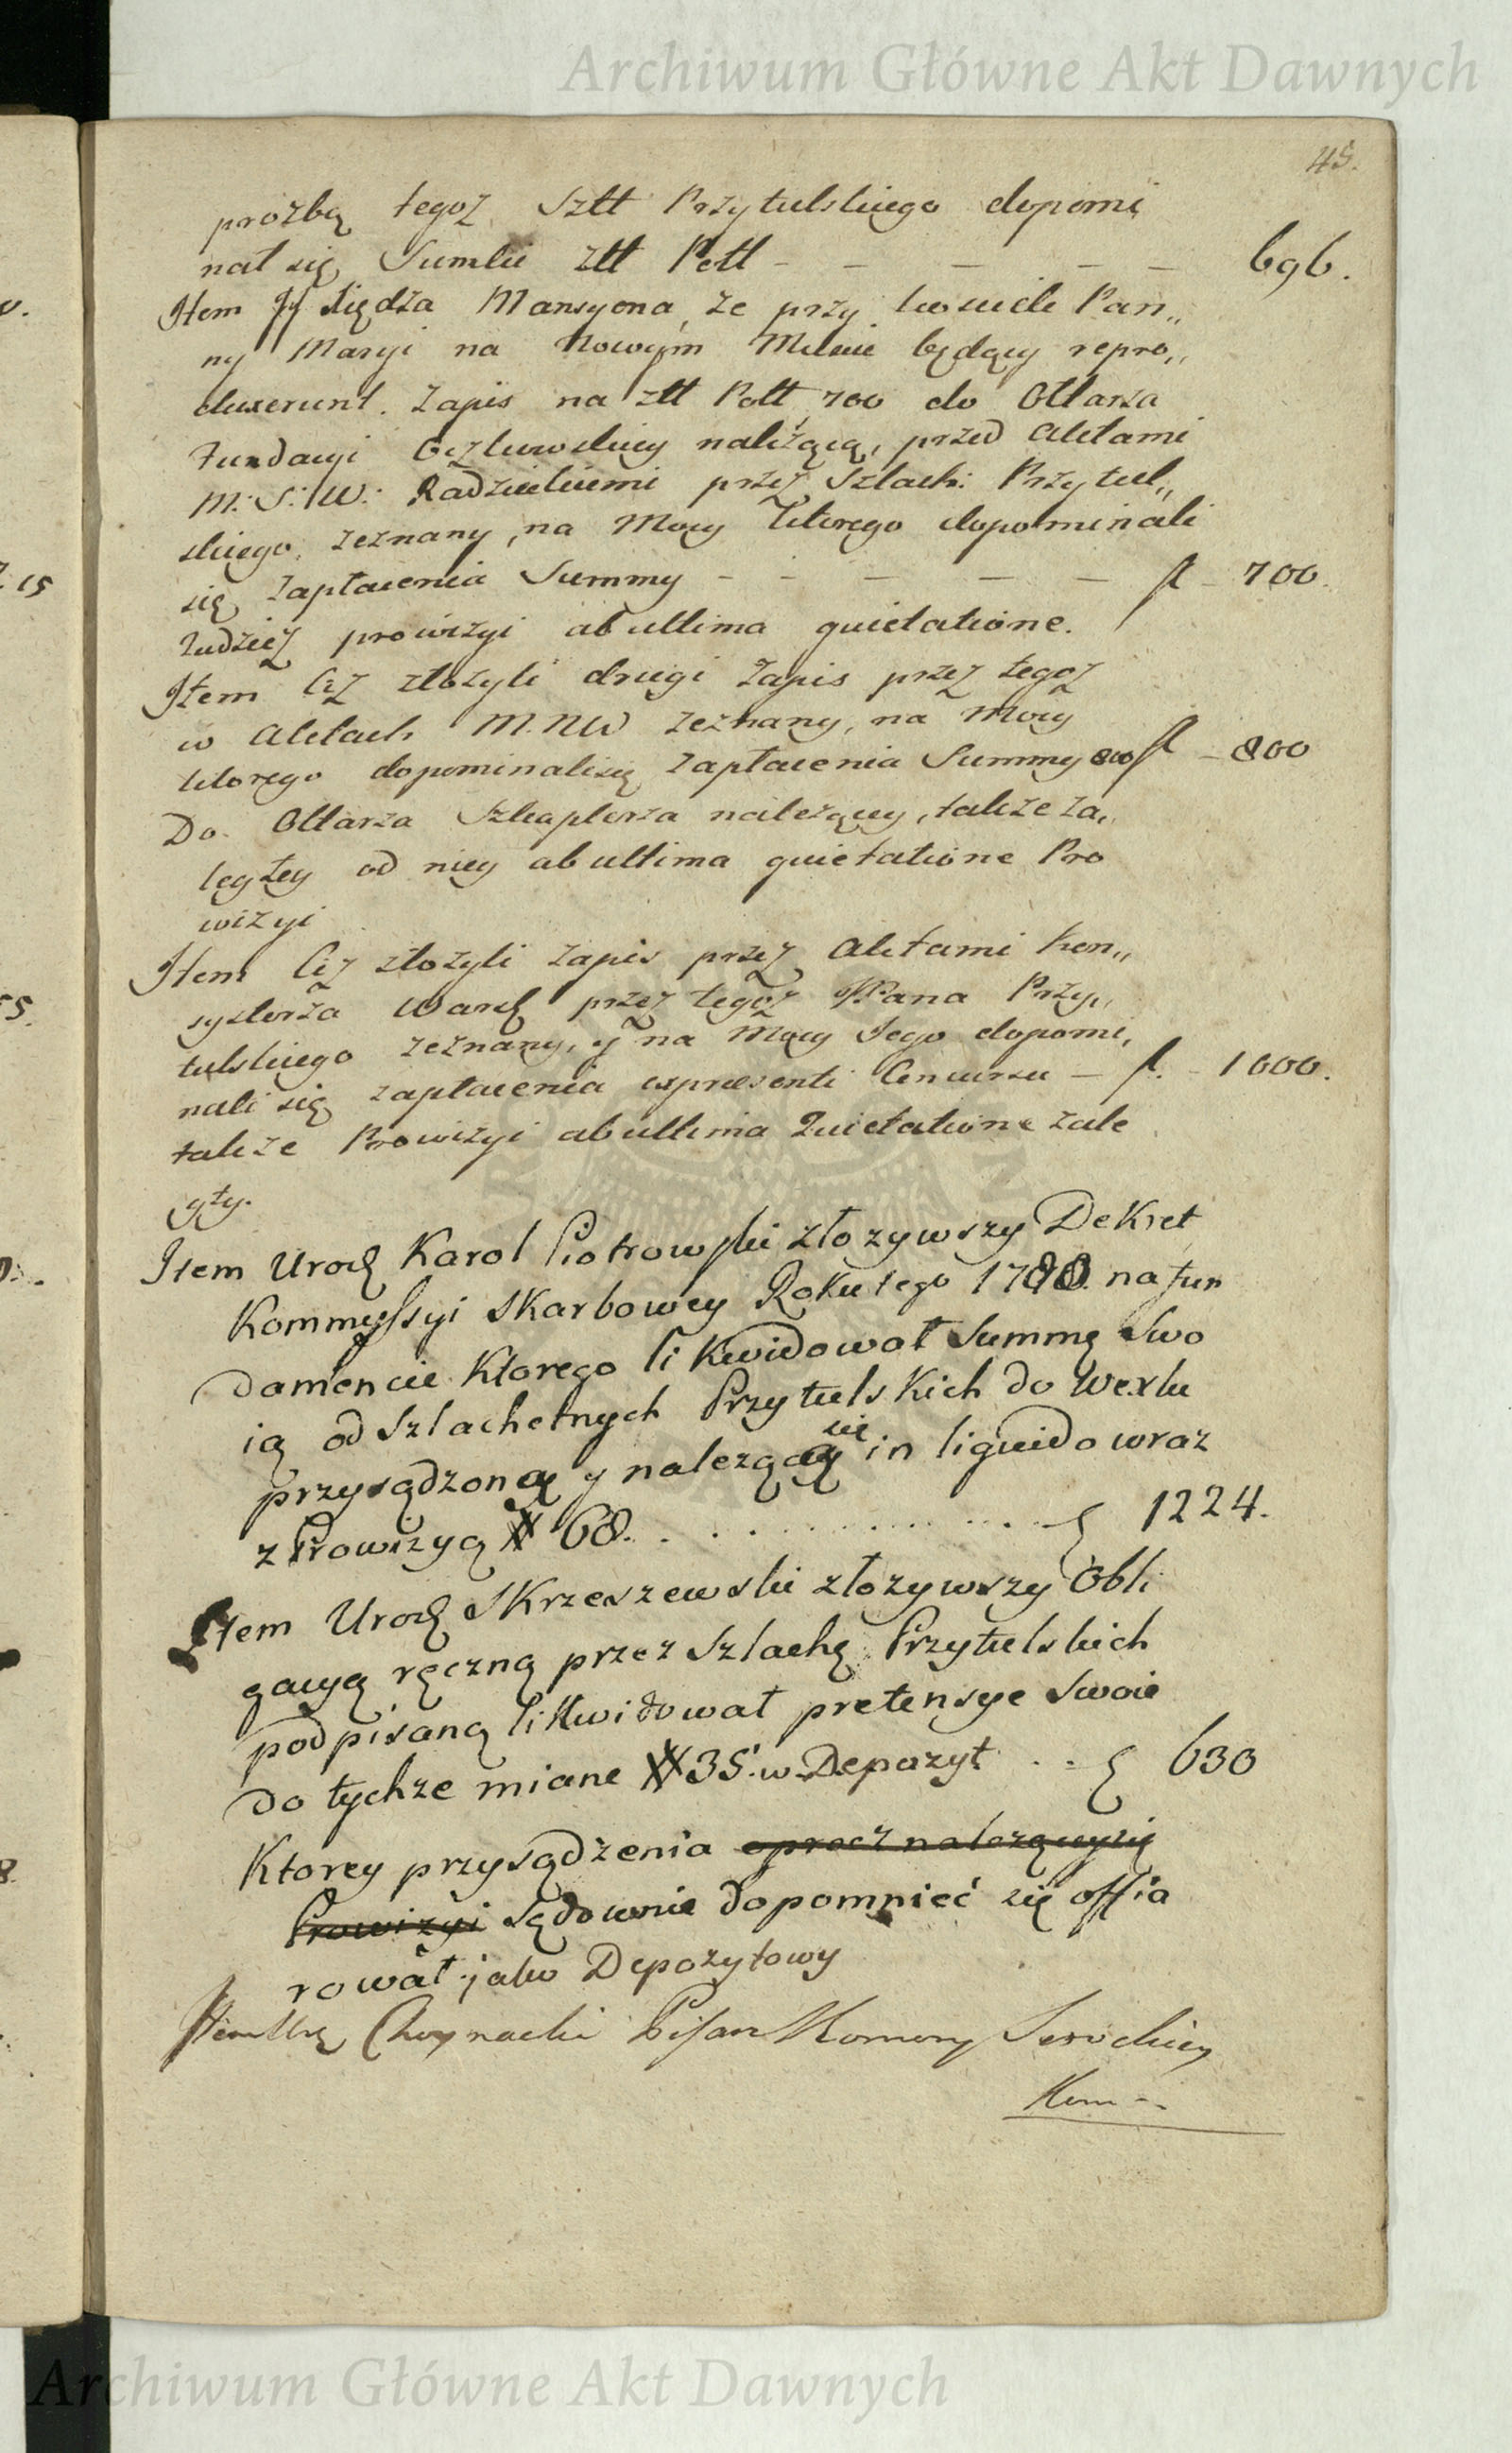 Archiwum Główne Akt Dawnych
45.
prozbą tegoż Szltt Przytulskiego dopomi
nał się Sumki Złł Poll - - - - - 696.
Item JJ Xiędza Mansyona, ze przy kosciele Pan„
ny Maryi na Nowym Miescie będący repro„
duxerunt. Zapis na złł Poll 700 do Ołtarza
Fundacyi należącą, przed Aktami
M: S: W: Radzieckiemi przez Szlach: Przytul„
skiego zeznany, na Mocy ktorego dopominali
się Zapłacenia Summy - - - - - fl - 700.
tudzież prowizyi ab ultima quietatione.
Item Ciż złożyli drugi Zapis przez tegoż
w Aktach M.NW zeznany, na Mocy
ktorego dopominali się Zapłacenia Summy 800 fl - 800
Do Ołtarza Szkaplerza należący, także za„
ległey od niey ab ultima quietatione Pro
wizyi
Item Ciż złożyli Zapis przez Aktami Kon„
systorza Warsz przez tegoż JPana Przy„
tulskiego zeznany, y na Mocy Jego dopomi„
nali się zapłacenia expraesenti Concursu - fl. - 1000.
także Prowizyi ab ultima Quietatione zale
gły.
Item Urodz Karol Piotrowski złozywszy Dekret
Kommyssyi Skarbowey Roku tego 1790. na fun
damencie Ktorego likwidował Summę Swo
ią od Szlachetnych Przytulskich do Wexlu
przysądzoną y nalezącą się in liquido wraz
z Prowizyą # 68. . . . . . . . . . . 1224.
Item Urodz Skrzeszewski złozywszy Obli
gacyą ręczną przez Szlachę Przytulskich
podpisaną likwidował pretensye swoie
do tychze miane ## 35. w Depozyt . . 630
Ktorey przysądzenia oprocz nalezącyżię
Prowizyi sądownie dopomnieć się offia
rował jako Depozytowy
Item Urz Choynacki Pisarz Komory Serockiey
Kom -
Archiwum Główne Akt Dawnych